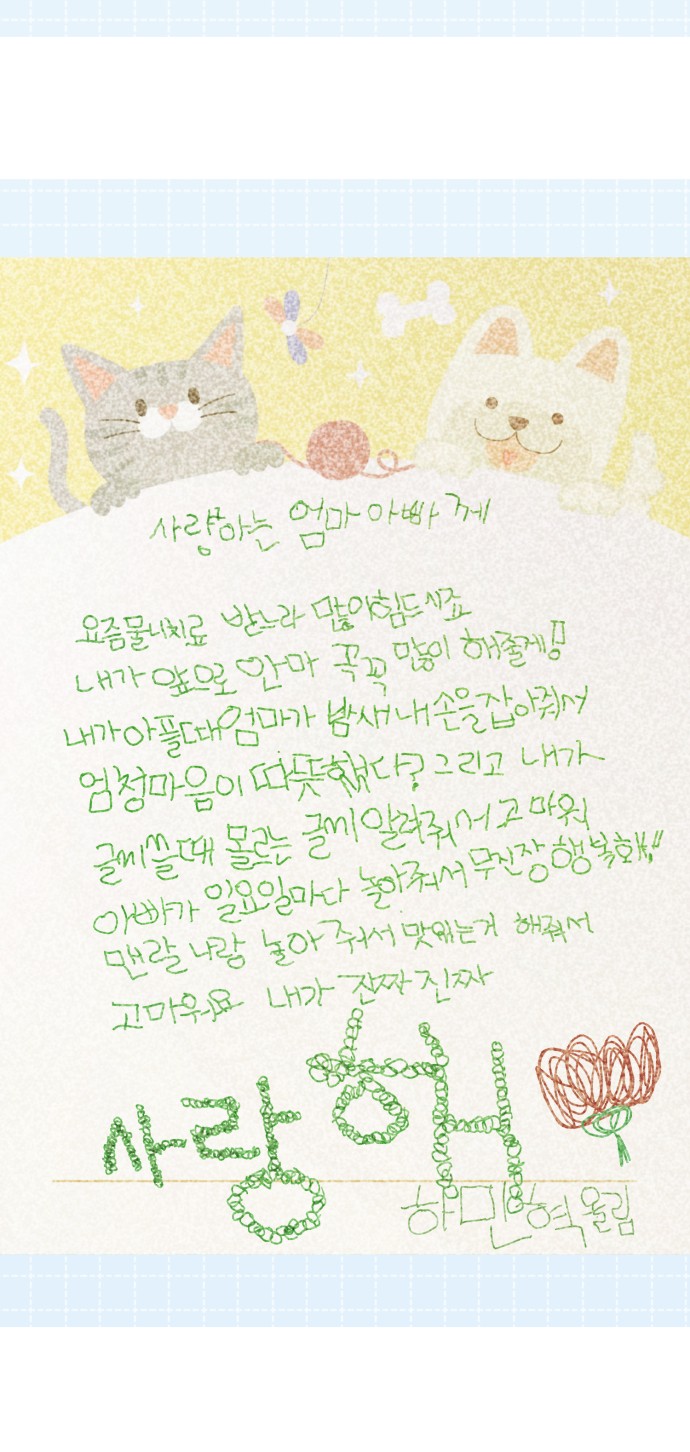 사랑하는 엄마 아빠 께
요즘물니치료 받느라 많이힘드시죠
내가 앞으로 안마 꼭꼭 많이 해줄게!!
내가아플때엄마가 밤새내손을잡아줘서
엄청마음이 따뜻했다? 그리고 내가
글씨쓸때 몰르는 글씨알려줘서고마워
아빠가 일요일마다 놀아줘서무진장행복해!!
맨랄 나랑 놀아 줘서 맛있는거 해줘서
고마워요 내가 진짜진짜
사랑해
하민혁올림